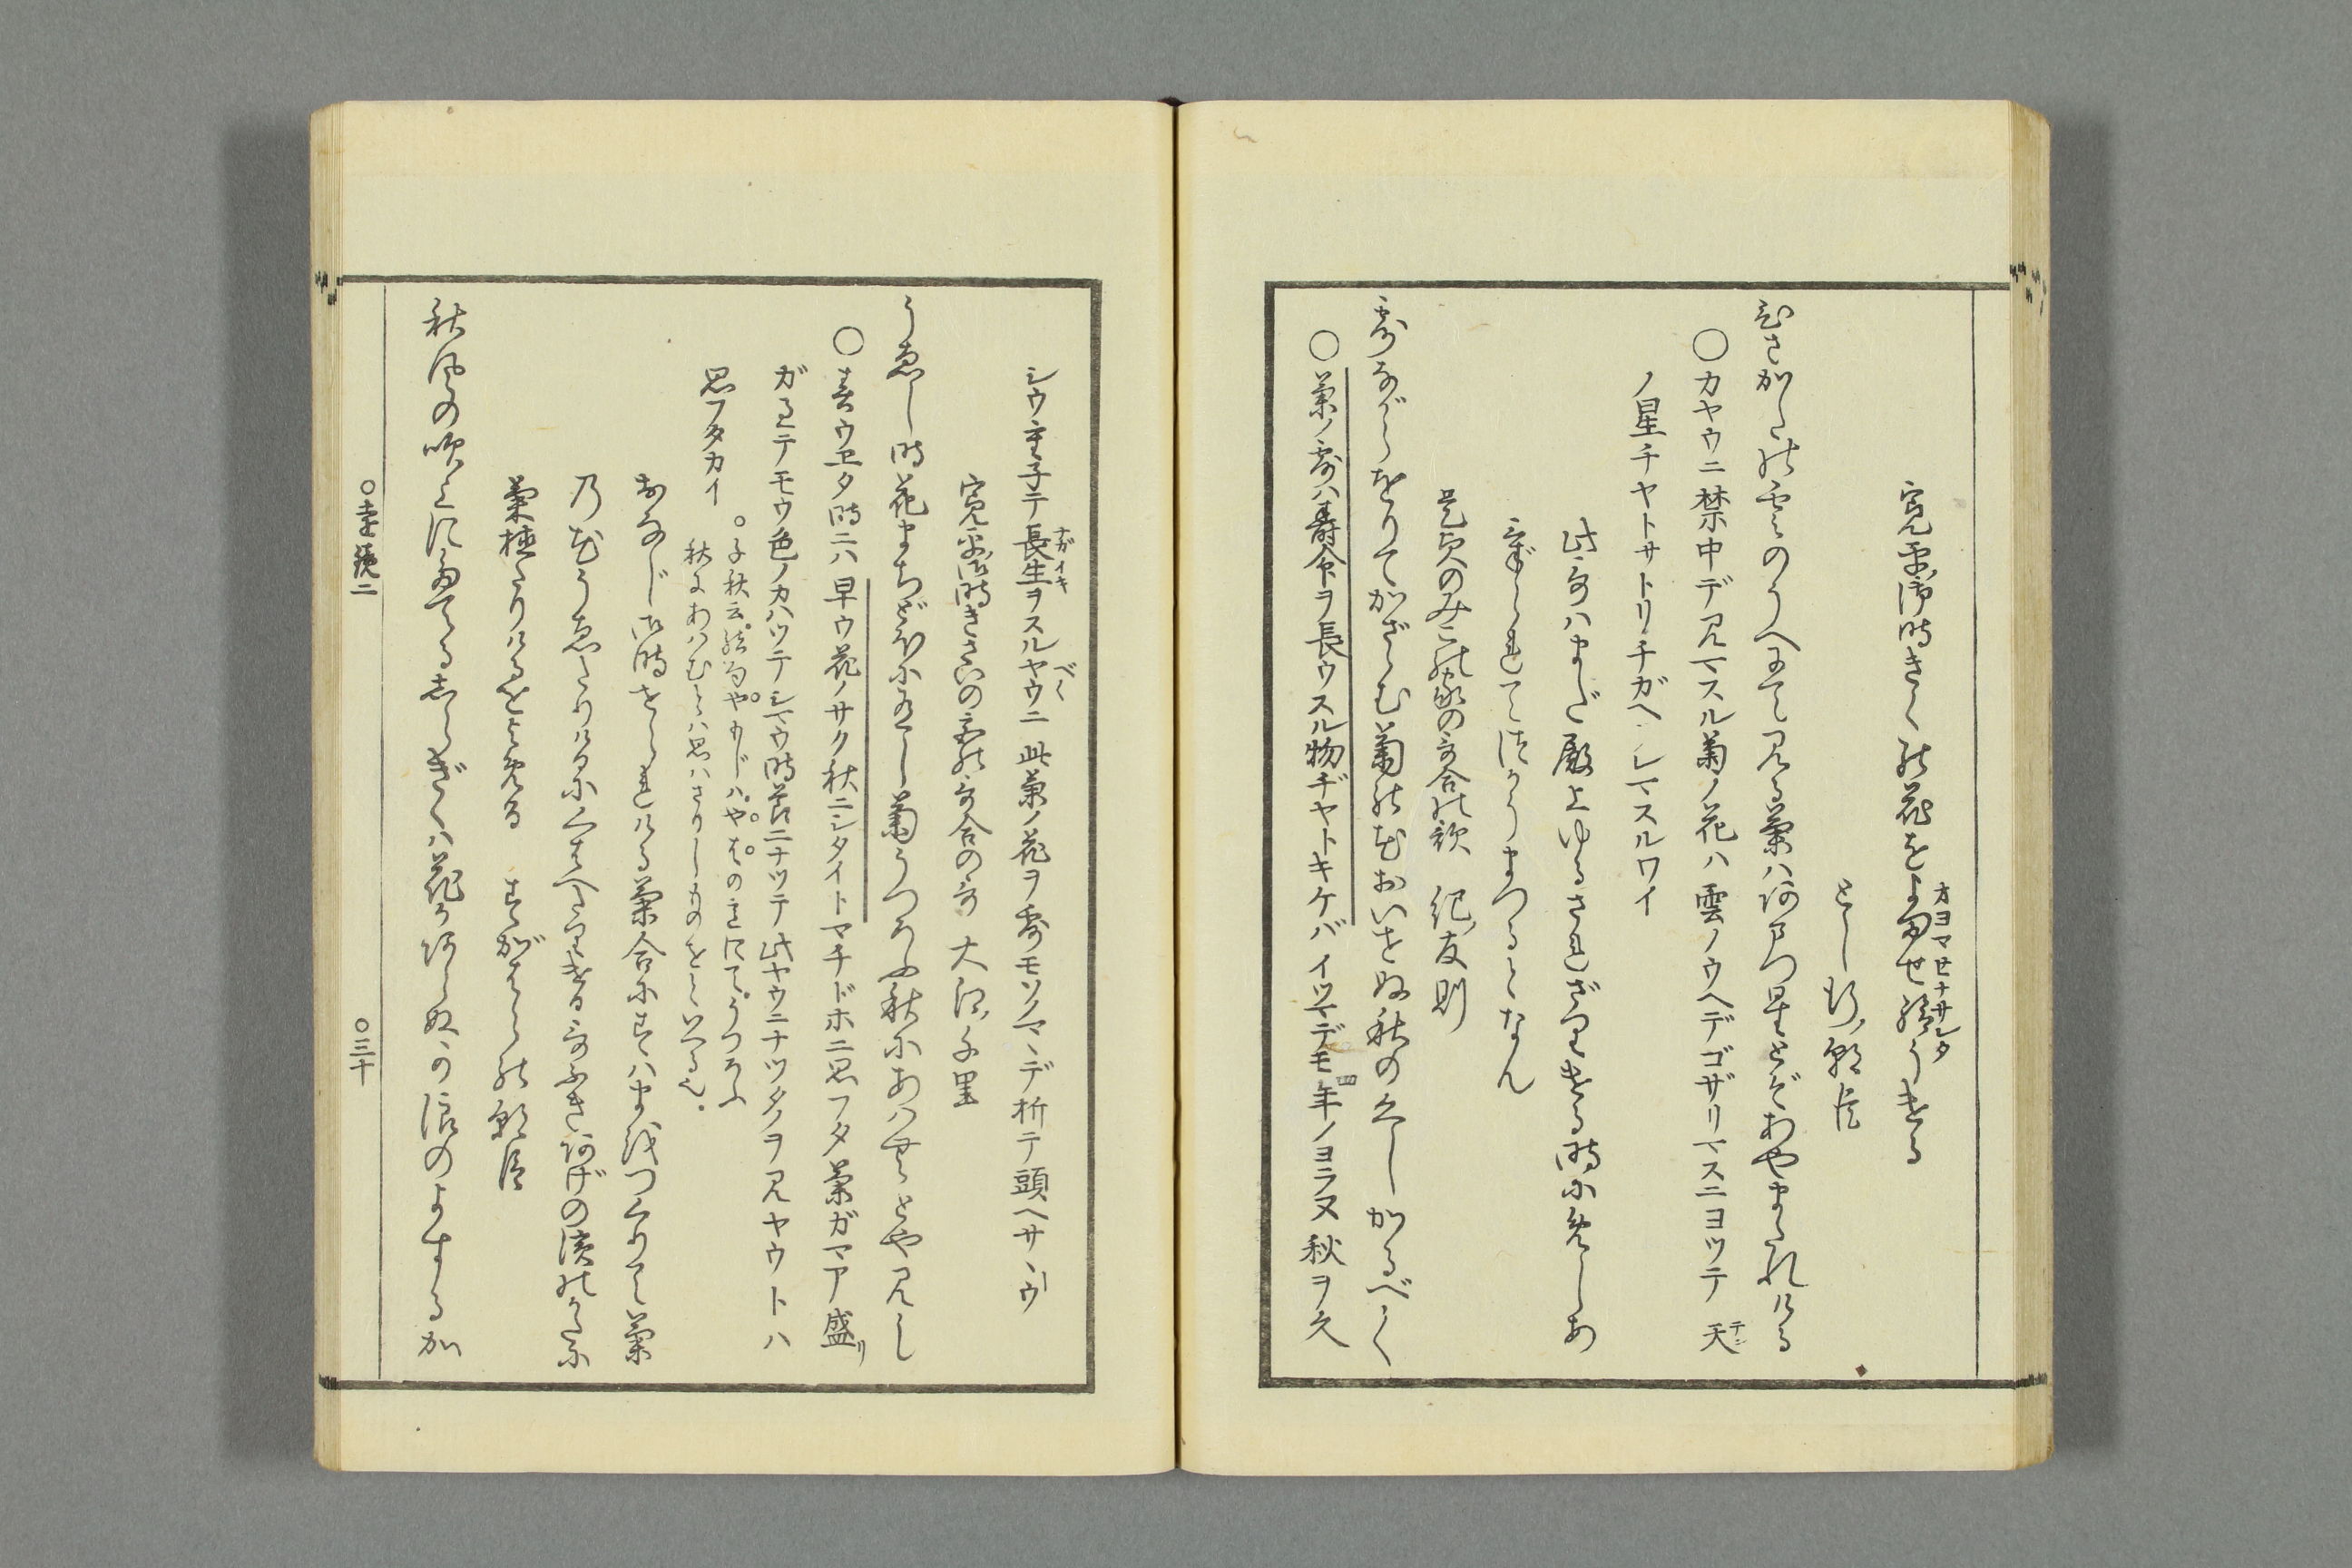 寛平御時きくの花をよませ給うける
カヨマセナサレタ
としゆきの朝臣
ひさかたの雲のうへにて見る菊はあまつ星とぞあやまたれける
○カヤウニ禁中デ見マスル菊ノ花ハ雲ノウヘデゴザリマスニヨツテ天
テン
ノ星チヤトサトリチガヘシマスルワイ
此哥はまだ殿上ゆるされざりける時にめしあ
げられてつかうまつるとなん
是貞のみこの家の哥合の歌 紀ノ友則
露ながらをりてかざさむ菊の花おいせぬ秋の久しかるべく
○菊ノ露ハ壽命ヲ長ウスル物ヂヤトキケバイツマデモ年ノヨラヌ秋ヲ久
シウ重子テ長生ヲスルヤウニ此菊ノ花ヲ露モソノマヽデ折テ頭ヘサヽウ
ナガイキ
べく
寛平御時きさいの宮の哥合の哥 大江ノ千里
うゑし時花まちどほに有し菊うつろふ秋にあはむとや見し
○春ウヱタ時ニハ早ウ花ノサク秋ニシタイトマチドホニ思フタ菊ガマア盛リ
ガスギテモウ色ノカハツテシマウ時節ニナツテ此ヤウニナツタノヲ見ヤウトハ
思フタカイ
○千秋云。結句や○もじは。や○はの意にて。うつろふ
秋にあはむとは思はざりしものをといへる也。
おなじ御時せられける菊合にすはまをつくりて菊
の花うゑたりけるにくはへたりける哥ふきあげの濱のかたに
菊植たりけるをよめる すがはらの朝臣
秋風の吹上にたてるしらぎくは花かあらぬか浪のよするか
○遠鏡二
○三十